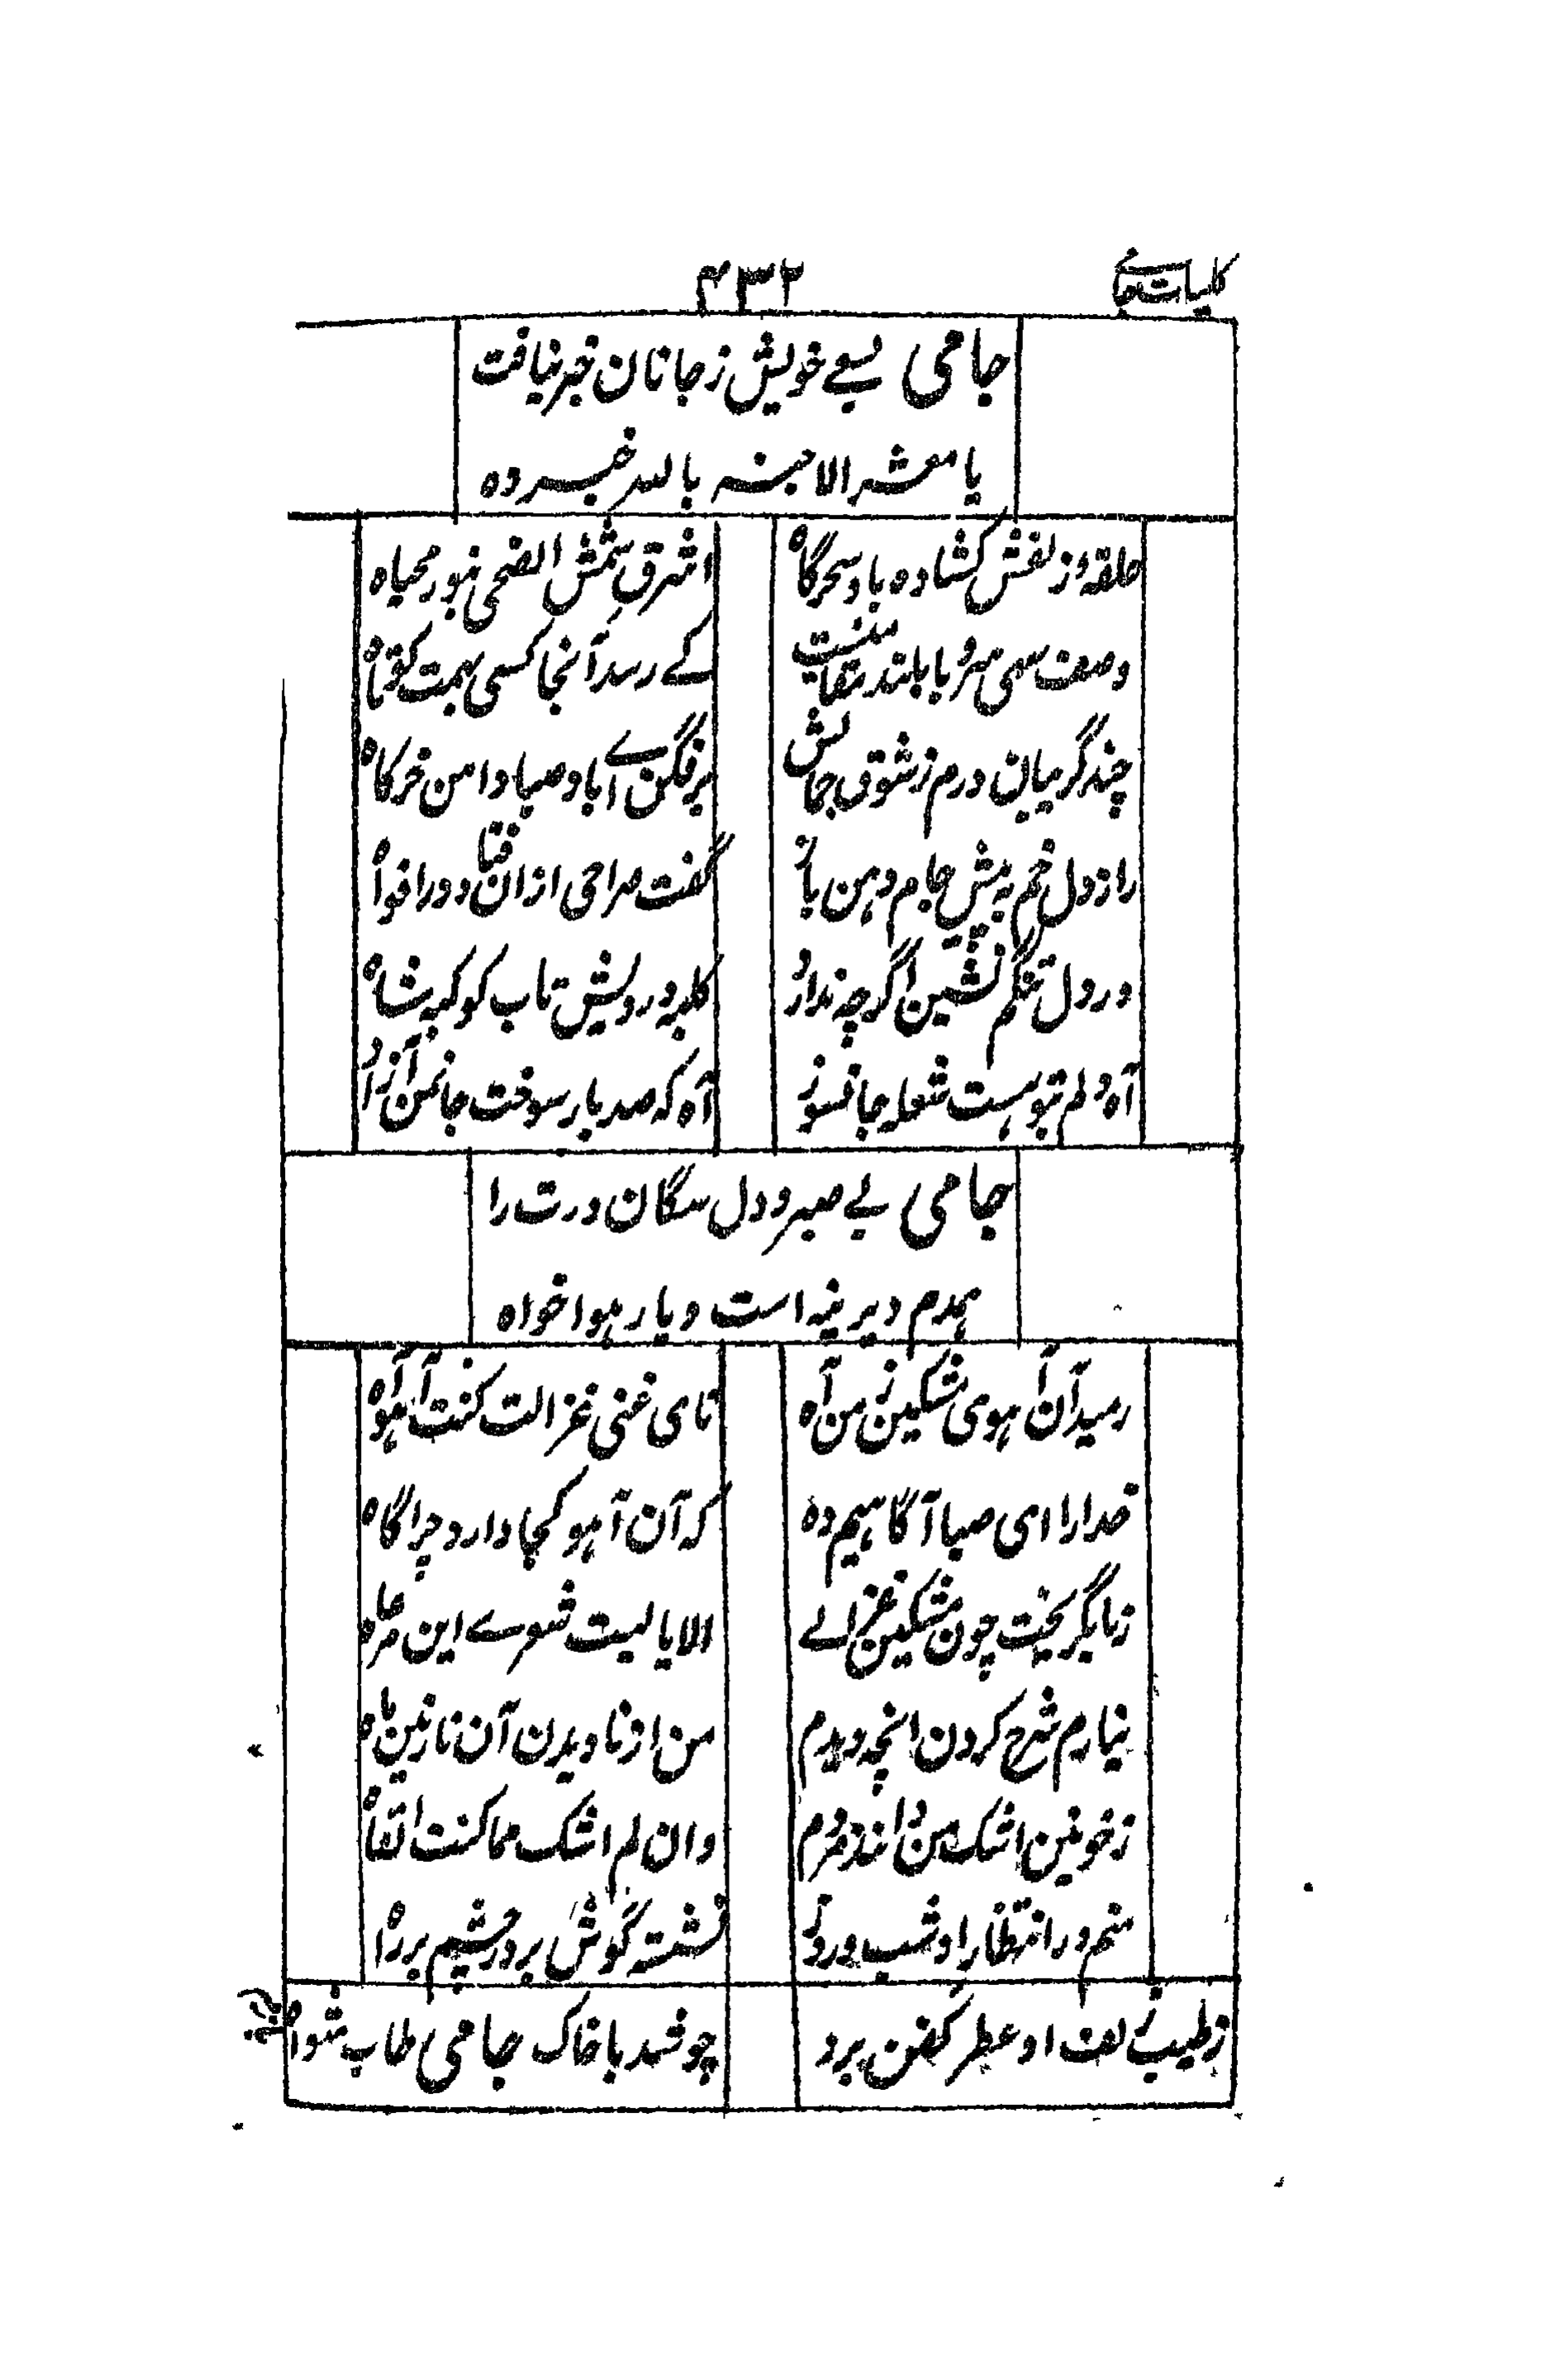 کلیات جامے
۴۳۲
جامی بسعے خویش ز جانان خبر نیافت
یا معشر الاحبة بالله خبر ده
حلقه ز زلفش کشاده باد سحرگاه
اشرق شمس الضحی بنور محیاه
وصف سهی سرو ما بلند مقامیست
کے رسد آنجا کسی بهمت کوتاه
چند گریبان درم ز شوق جمالش
برفگن اے باد صبا دامن خرگاه
راز دل خم به پیش جام دهن باز
گفت صراحی ازان فتاد در افواه
در دل تنگم نشین اگرچه ندارد
کلبه درویش تاب کوکبه شاه
آه دلم تو هست شعله جانسوز
آه که صد بار سوخت جانمن از آه
جامی بے صبر و دل سگان درت را
همدم دیرینه است و یار هواخواه
رمید آن آهوی مشکین ز من آه
نای عنی غزالت کنت آهواه
خدارا ای صبا آگاهیم ده
که آن آهو کجا دارد چراگاه
ز ما بگریخت چون مشکین غزالے
الا یا لیت شعرے این مرعاه
نیارم شرح کردن انچه دیدم
من از نادیدن آن نازنین ماه
ز خونین اشک من دانند مردم
وان لم اشک مما کنت القاه
منم در انتظار او شب و روز
نشسته گوش بر در چشم بر راه
ز طیب زلف او عطر کفن برد
چو شد با خاک جامی طاب مثواه